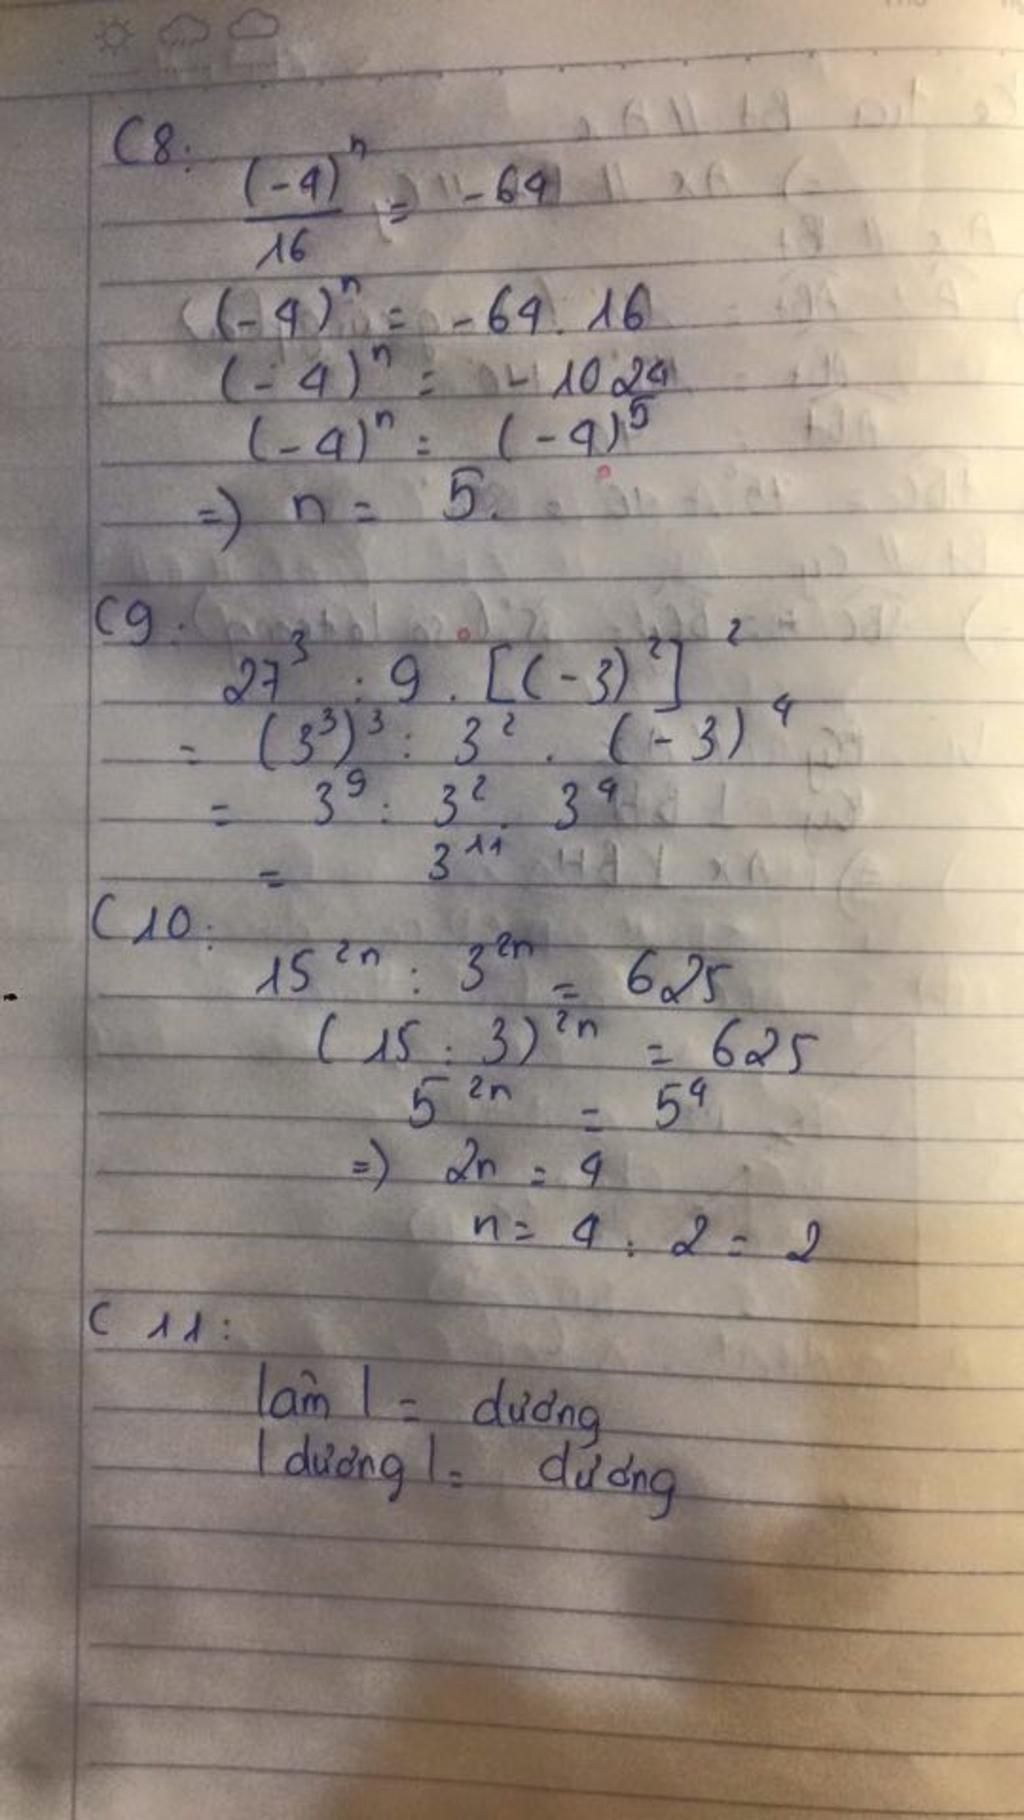 C8:
(-4)^n / 16 = -64
(-4)^n = -64. 16
(-4)^n = - 1024
(-4)^n = (-4)^5
=) n = 5.
C9.
27^3 : 9 . [(-3)^2]^2
= (3^3)^3 : 3^2 . (-3)^4
= 3^9 : 3^2 . 3^4
= 3^11
C10:
15^2n : 3^2n = 625
(15 : 3)^2n = 625
5^2n = 5^4
=) 2n = 4
n = 4 : 2 = 2
C 11:
|âm| = dương
|dương| = dương